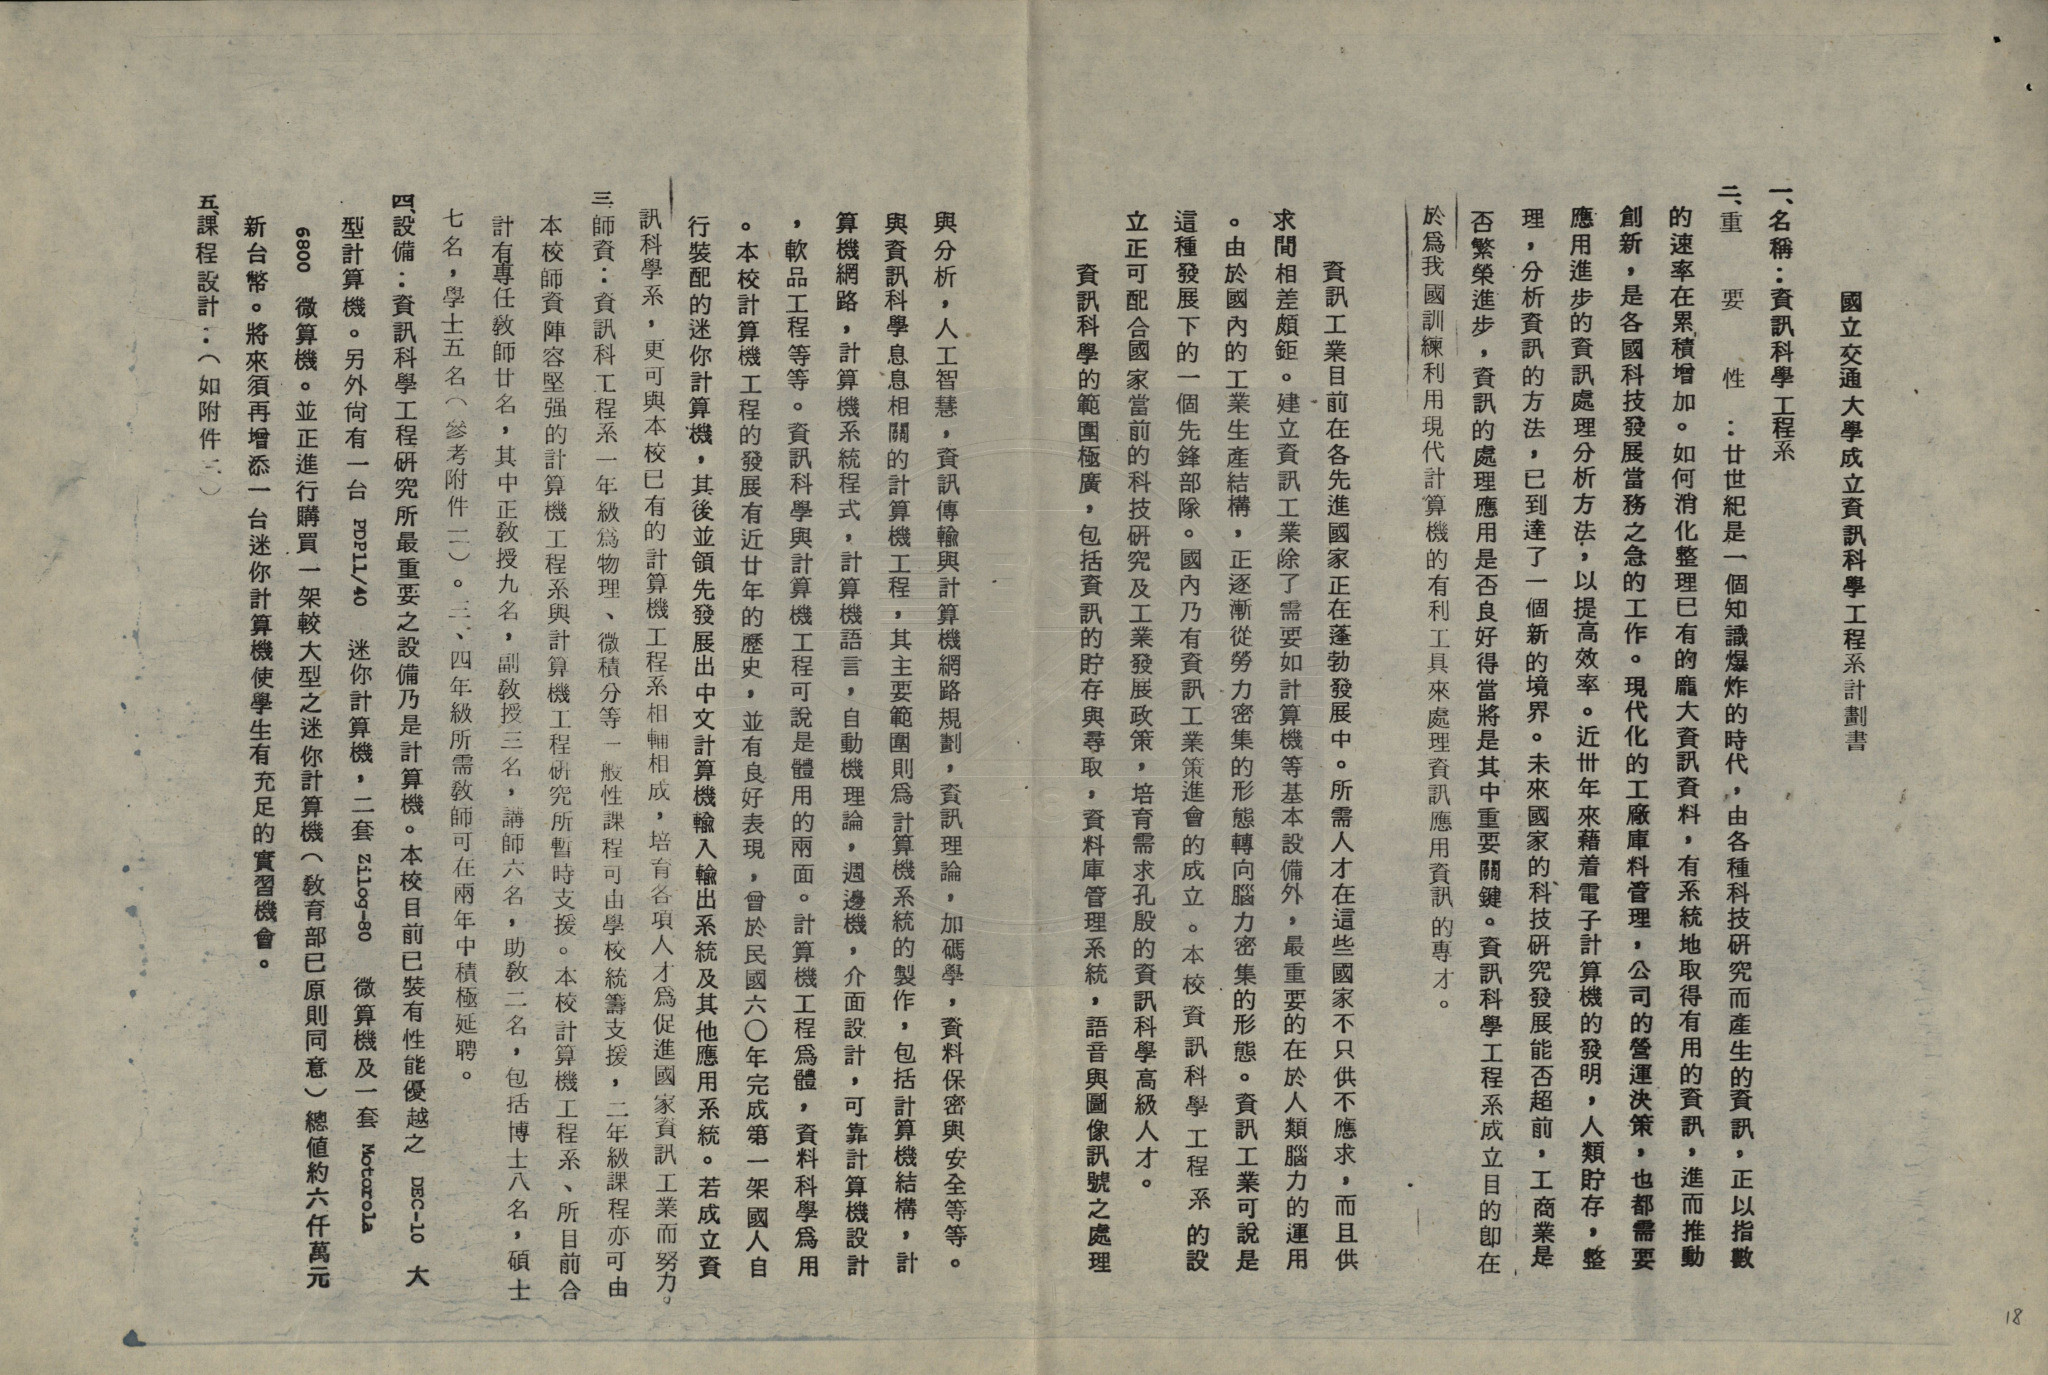 國立交通大學成立資訊科學工程系計劃書
一、名稱：資訊科學工程系
二、重要性：廿世紀是一個知識爆炸的時代，由各種科技研究而產生的資訊，正以指數
的速率在累積增加。如何消化整理已有的龐大資訊資料，有系統地取得有用的資訊，進而推動
創新，是各國科技發展當務之急的工作。現代化的工廠庫料管理，公司的營運決策，也都需要
應用進步的資訊處理分析方法，以提高效率。近卅年來藉着電子計算機的發明，人類貯存，整
理，分析資訊的方法，已到達了一個新的境界。未來國家的科技研究發展能否超前，工商業是
否繁榮進步，資訊的處理應用是否良好得當將是其中重要關鍵。資訊科學工程系成立目的卽在
於爲我國訓練利用現代計算機的有利工具來處理資訊應用資訊的專才。
資訊工業目前在各先進國家正在蓬勃發展中。所需人才在這些國家不只供不應求，而且供
求間相差頗鉅。建立資訊工業除了需要如計算機等基本設備外，最重要的在於人類腦力的運用
。由於國內的工業生產結構，正逐漸從勞力密集的形態轉向腦力密集的形態。資訊工業可說是
這種發展下的一個先鋒部隊。國內乃有資訊工業策進會的成立。本校資訊科學工程系的設
立正可配合國家當前的科技研究及工業發展政策，培育需求孔殷的資訊科學高級人才。
資訊科學的範圍極廣，包括資訊的貯存與尋取，資料庫管理系統，語音與圖像訊號之處理
與分析，人工智慧，資訊傳輸與計算機網路規劃，資訊理論，加碼學，資料保密與安全等等。
與資訊科學息息相關的計算機工程，其主要範圍則爲計算機系統的製作，包括計算機結構，計
算機網路，計算機系統程式，計算機語言，自動機理論，週邊機，介面設計，可靠計算機設計
，軟品工程等等。資訊科學與計算機工程可說是一體用的兩面。計算機工程爲體，資料科學爲用
。本校計算機工程的發展有近廿年的歷史，並有良好表現，曾於民國六〇年完成第一架國人自
行裝配的迷你計算機，其後並領先發展出中文計算機輸入輸出系統及其他應用系統。若成立資
訊科學系，更可與本校已有的計算機工程系相輔相成，培育各項人才爲促進國家資訊工業而努力。
三、師資：資訊科工程系一年級爲物理、微積分等一般性課程可由學校統籌支援，二年級課程亦可由
本校師資陣容堅强的計算機工程系與計算機工程研究所暫時支援。本校計算機工程系、所目前合
計有專任教師廿名，其中正教授九名，副教授三名，講師六名，助教二名，包括博士八名，碩士
七名，學士五名（參考附件二）。三、四年級所需教師可在兩年中積極延聘。
四、設備：資訊科學工程研究所最重要之設備乃是計算機。本校目前已裝有性能優越之 DEC-10 大
型計算機。另外尚有一台 PDP11/40 迷你計算機，二套 Zilog-80 微算機及一套 Motorola
6800 微算機。並正進行購買一架較大型之迷你計算機（教育部已原則同意）總值約六仟萬元
新台幣。將來須再增添一台迷你計算機使學生有充足的實習機會。
五、課程設計：（如附件三）
18